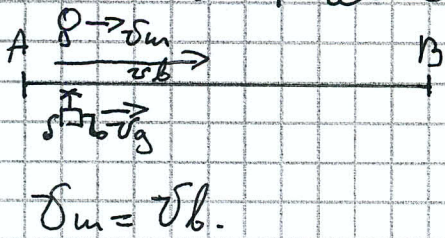 A → v̄m B
vb
v̄g
v̄m = v̄b.